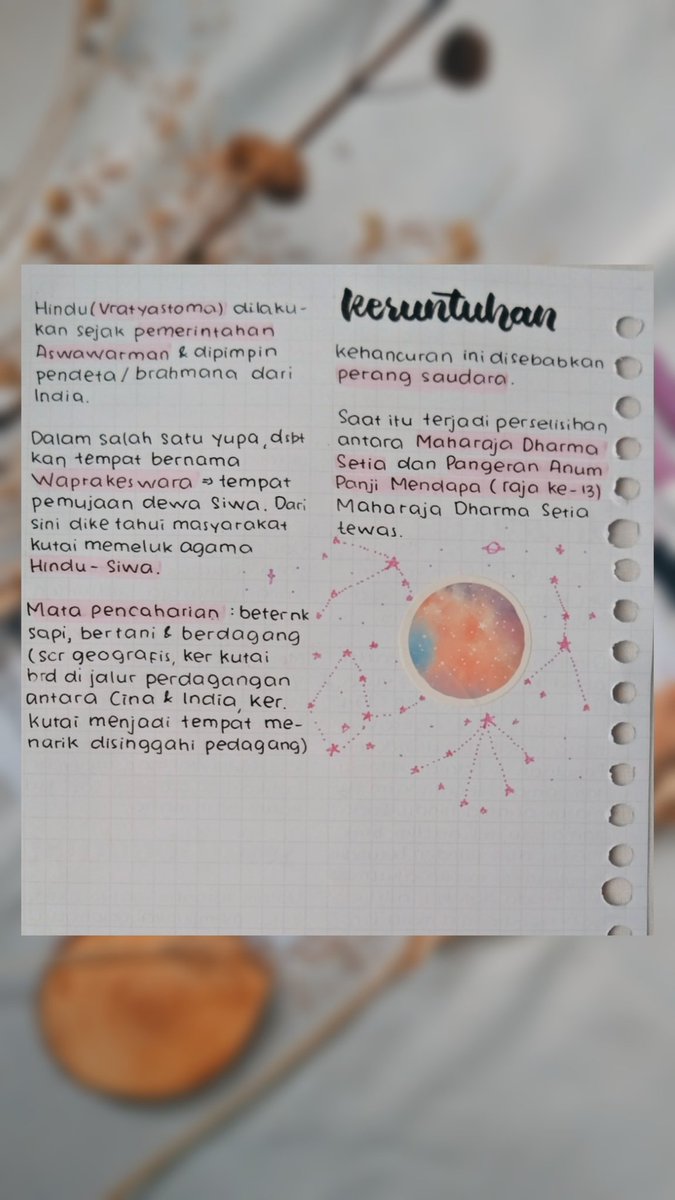 Hindu (Vratyastoma) dilaku-
kan sejak pemerintahan
Aswawarman & dipimpin
pendeta / brahmana dari
India.
Dalam salah satu yupa, dsbt
kan tempat bernama
Waprakeswara ⇒ tempat
pemujaan dewa Siwa. Dari
sini diketahui masyarakat
kutai memeluk agama
Hindu - Siwa.
Mata pencaharian : beternk
sapi, bertani & berdagang
(scr geografis, ker kutai
brd di jalur perdagangan
antara Cina & India, ker.
kutai menjadi tempat me-
narik disinggahi pedagang)
keruntuhan
kehancuran ini disebabkan
perang saudara.
Saat itu terjadi perselisihan
antara Maharaja Dharma
Setia dan Pangeran Anum
Panji Mendapa (raja ke-13)
Maharaja Dharma Setia
tewas.